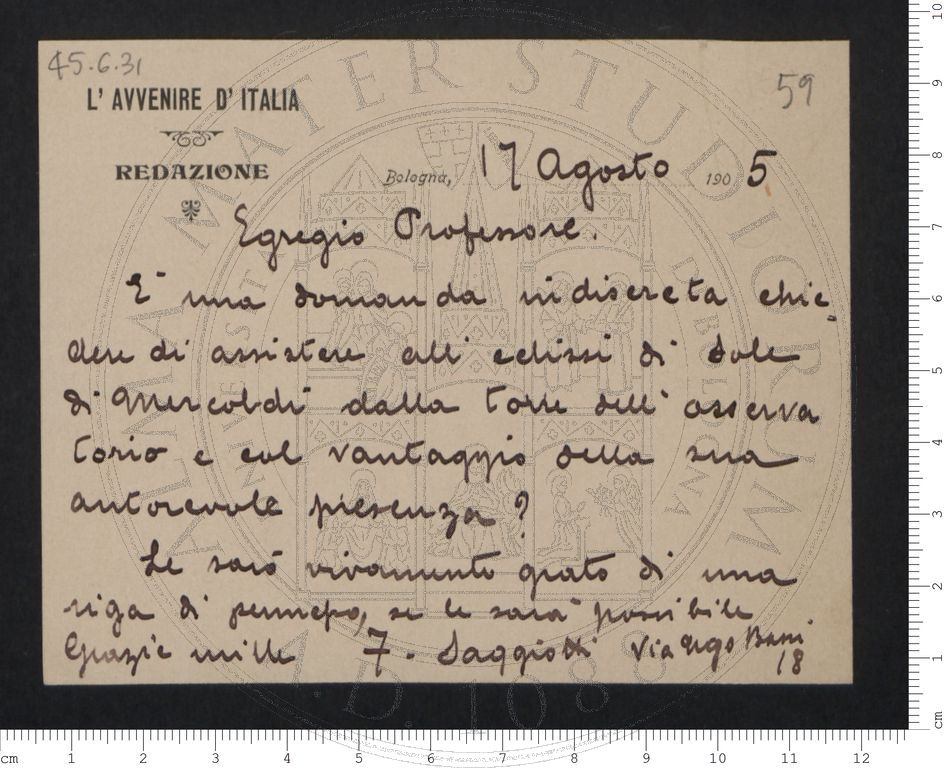 45.6.31
59
L' AVVENIRE D' ITALIA
REDAZIONE
Bologna, 17 Agosto 1905
Egregio Professore.
E' una domanda indiscreta chie=
dere di assistere all' eclissi di sole
di Mercoldi dalla torre dell' osserva
torio e col vantaggio della sua
autorevole presenza?
Le sarò vivamente grato di una
riga di permesso, se le sarà possibile
Grazie mille 7. Via Ugo Bassi
18
ALMA MATER STUDIORUM
A.D. 1088
cm 1 2 3 4 5 6 7 8 9 10 11 12
10
9
8
7
6
5
4
3
2
1
cm